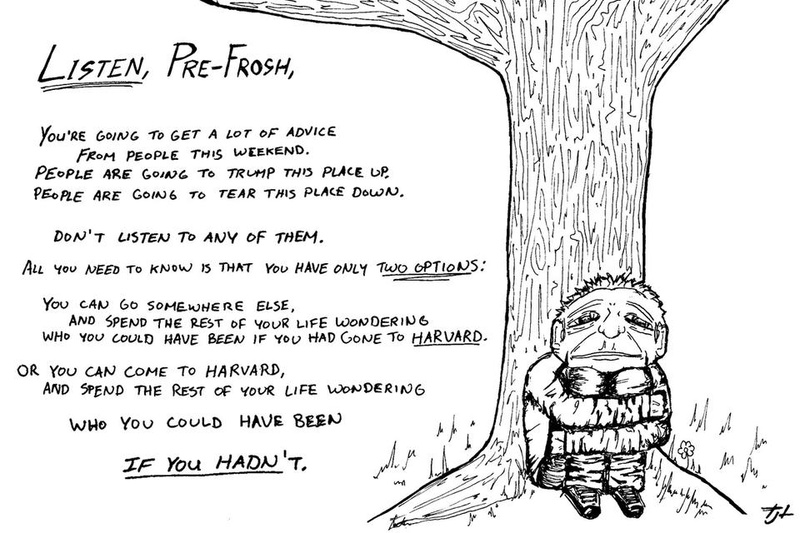 LISTEN, PRE-FROSH,
YOU'RE GOING TO GET A LOT OF ADVICE
FROM PEOPLE THIS WEEKEND.
PEOPLE ARE GOING TO TRUMP THIS PLACE UP.
PEOPLE ARE GOING TO TEAR THIS PLACE DOWN.
DON'T LISTEN TO ANY OF THEM.
ALL YOU NEED TO KNOW IS THAT YOU HAVE ONLY TWO OPTIONS:
YOU CAN GO SOMEWHERE ELSE,
AND SPEND THE REST OF YOUR LIFE WONDERING
WHO YOU COULD HAVE BEEN IF YOU HAD GONE TO HARVARD.
OR YOU CAN COME TO HARVARD,
AND SPEND THE REST OF YOUR LIFE WONDERING
WHO YOU COULD HAVE BEEN
IF YOU HADN'T.